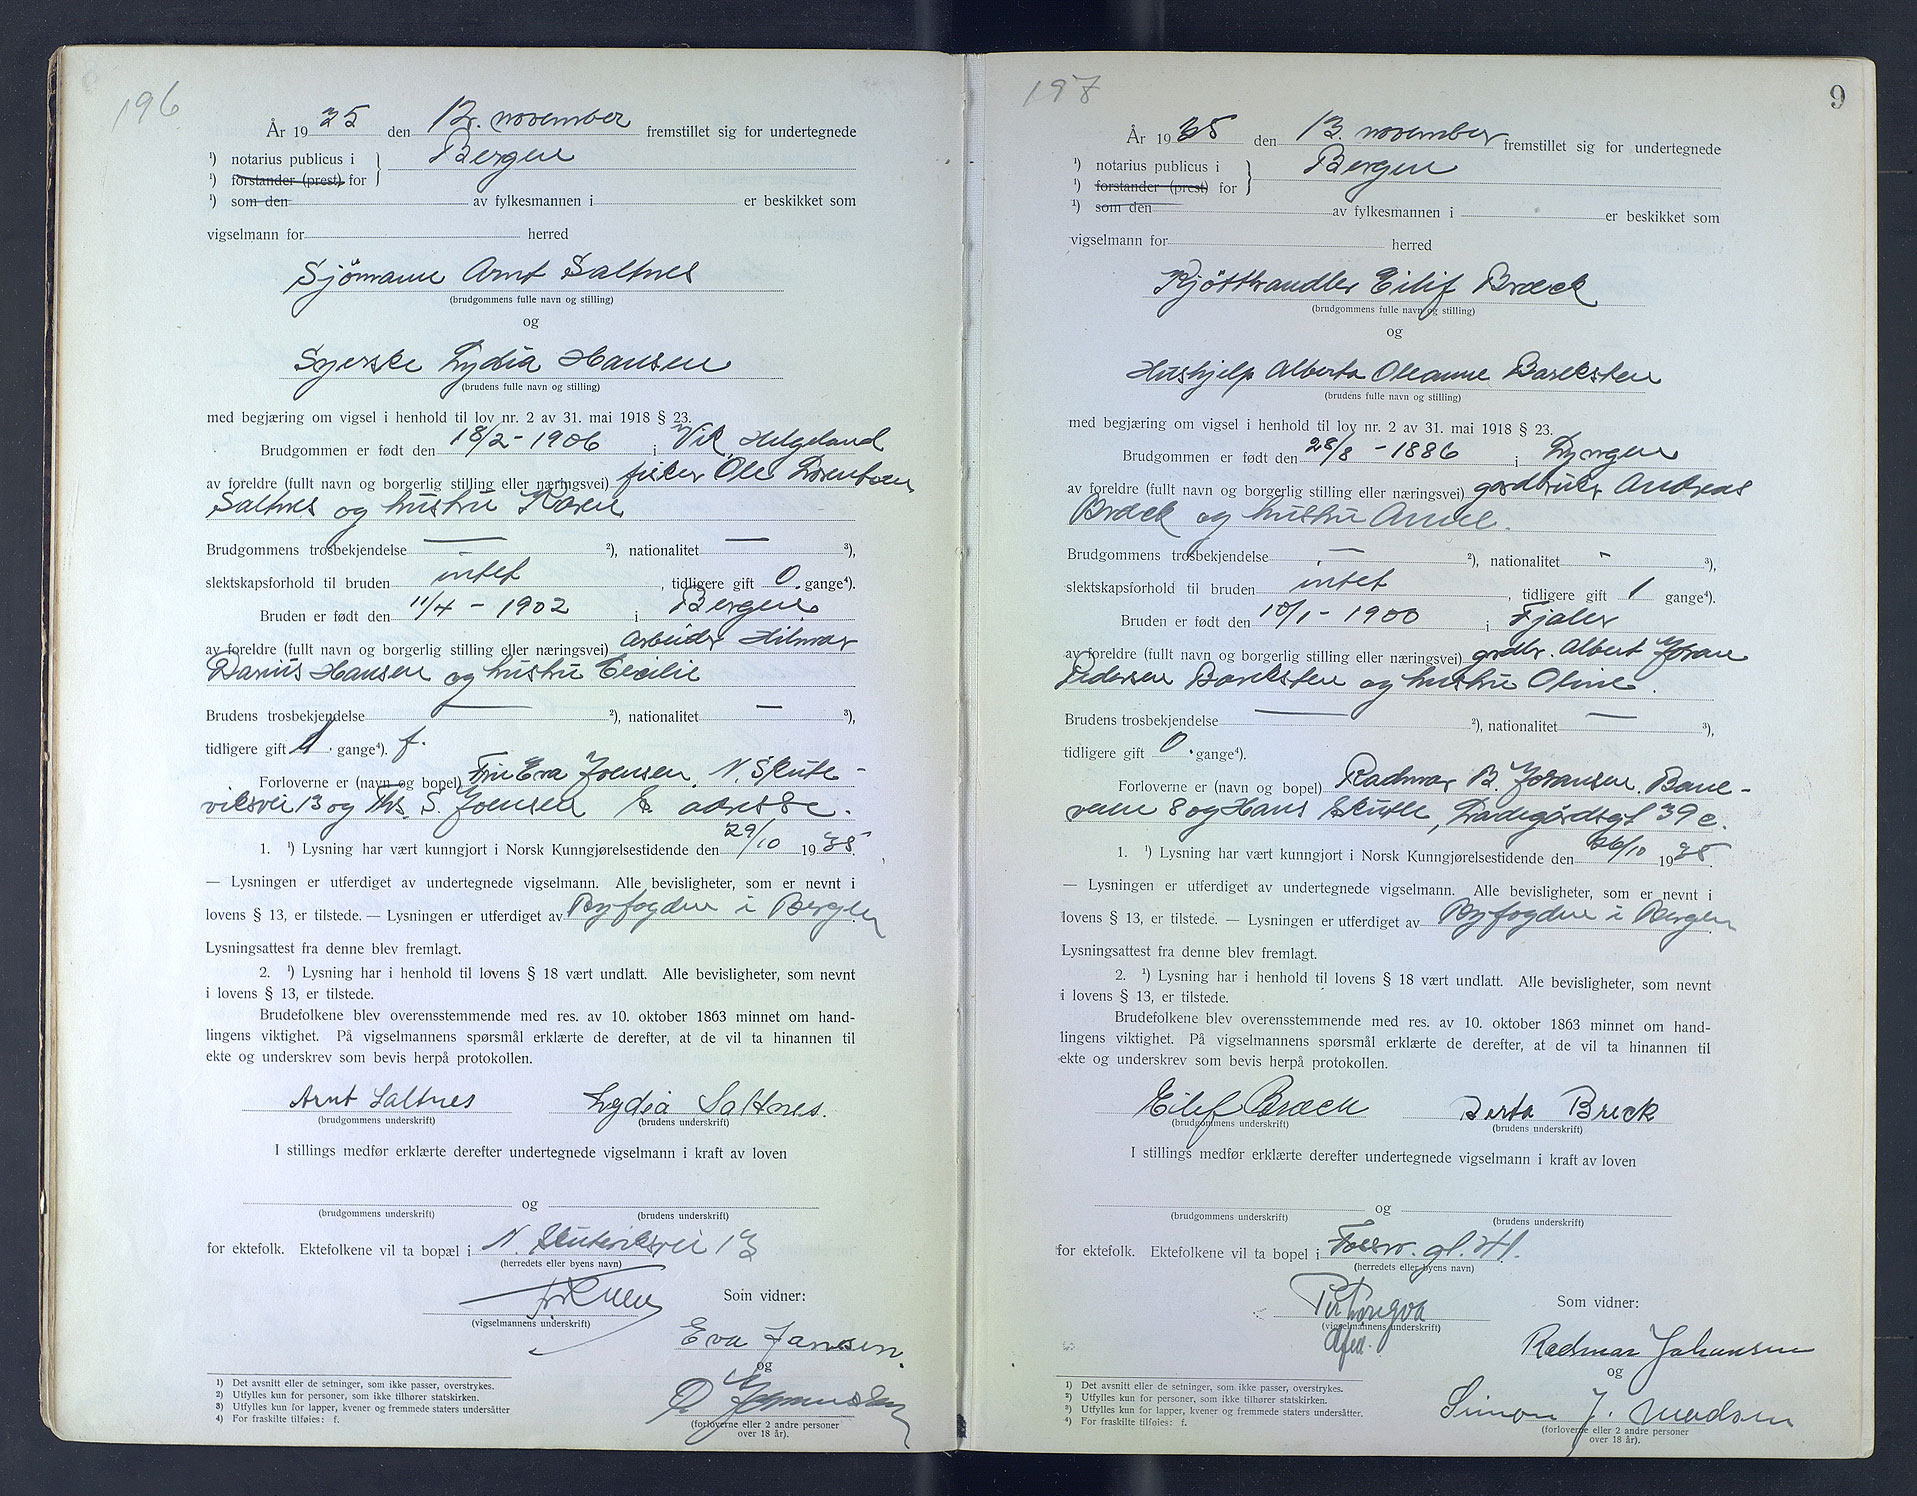 196
År 1935 den 12. november fremstillet sig for undertegnede
¹) notarius publicus i } Bergen
¹) forstander (prest) for
¹) som den av fylkesmannen i er beskikket som
vigselmann for herred
Sjömann Arnt Saltnes
(brudgommens fulle navn og stilling)
og
Syerske Lydia Hansen
(brudens fulle navn og stilling)
med begjæring om vigsel i henhold til lov nr. 2 av 31. mai 1918 § 23.
Brudgommen er født den 18/2 - 1906 i Vik, Helgeland
av foreldre (fullt navn og borgerlig stilling eller næringsvei) fisker Ole Lorentsen
Saltnes og hustru Karen
Brudgommens trosbekjendelse — ²), nationalitet — ³),
slektskapsforhold til bruden intet, tidligere gift 0 gange⁴).
Bruden er født den 11/4 - 1902 i Bergen
av foreldre (fullt navn og borgerlig stilling eller næringsvei) arbeider Hilmar
Darius Hansen og hustru Cecilie
Brudens trosbekjendelse — ²), nationalitet — ³),
tidligere gift 1 gange⁴). f.
Forloverne er (navn og bopel) Fru Eva Joensen, N. Skute-
viksvei 13 og Ths. S. Joensen s. adresse.
1. ¹) Lysning har vært kunngjort i Norsk Kunngjørelsestidende den 29/10 1935.
— Lysningen er utferdiget av undertegnede vigselmann. Alle bevisligheter, som er nevnt i
lovens § 13, er tilstede. — Lysningen er utferdiget av Byfogden i Bergen
Lysningsattest fra denne blev fremlagt.
2. ¹) Lysning har i henhold til lovens § 18 vært undlatt. Alle bevisligheter, som nevnt
i lovens § 13, er tilstede.
Brudefolkene blev overensstemmende med res. av 10. oktober 1863 minnet om hand-
lingens viktighet. På vigselmannens spørsmål erklærte de derefter, at de vil ta hinannen til
ekte og underskrev som bevis herpå protokollen.
Arnt Saltnes Lydia Saltnes.
(brudgommens underskrift) (brudens underskrift)
I stillings medfør erklærte derefter undertegnede vigselmann i kraft av loven
og
(brudgommens underskrift) (brudens underskrift)
for ektefolk. Ektefolkene vil ta bopæl i N. Skuteviksvei 13
(herredets eller byens navn)
Som vidner:
(vigselmannens underskrift)
Eva Jansen.
og
(forloverne eller 2 andre personer
over 18 år).
1) Det avsnitt eller de setninger, som ikke passer, overstrykes.
2) Utfylles kun for personer, som ikke tilhører statskirken.
3) Utfylles kun for lapper, kvener og fremmede staters undersåtter
4) For fraskilte tilføies: f.
197
9
År 1935 den 13. november fremstillet sig for undertegnede
¹) notarius publicus i } Bergen
¹) forstander (prest) for
¹) som den av fylkesmannen i er beskikket som
vigselmann for herred
Kjötthandler Eilif Bræck
(brudgommens fulle navn og stilling)
og
Hushjelp Alberta Oleanne Bareksten
(brudens fulle navn og stilling)
med begjæring om vigsel i henhold til lov nr. 2 av 31. mai 1918 § 23.
Brudgommen er født den 28/8 - 1886 i Lyngen
av foreldre (fullt navn og borgerlig stilling eller næringsvei) gardbruker Andreas
Bræck og hustru Anne.
Brudgommens trosbekjendelse — ²), nationalitet - ³),
slektskapsforhold til bruden intet, tidligere gift 1 gange⁴).
Bruden er født den 10/1 - 1900 i Fjaler
av foreldre (fullt navn og borgerlig stilling eller næringsvei) gardbr. Albert Johan
Pedersen Bareksten og hustru Oline.
Brudens trosbekjendelse — ²), nationalitet — ³),
tidligere gift 0 gange⁴).
Forloverne er (navn og bopel) Radmar B. Johansen, Bane-
veien 8 og Hans Skutle, Ladegårdsgt 39 c.
1. ¹) Lysning har vært kunngjort i Norsk Kunngjørelsestidende den 26/10 1935.
— Lysningen er utferdiget av undertegnede vigselmann. Alle bevisligheter, som er nevnt i
lovens § 13, er tilstede. — Lysningen er utferdiget av Byfogden i Bergen
Lysningsattest fra denne blev fremlagt.
2. ¹) Lysning har i henhold til lovens § 18 vært undlatt. Alle bevisligheter, som nevnt
i lovens § 13, er tilstede.
Brudefolkene blev overensstemmende med res. av 10. oktober 1863 minnet om hand-
lingens viktighet. På vigselmannens spørsmål erklærte de derefter, at de vil ta hinannen til
ekte og underskrev som bevis herpå protokollen.
Eilif Bræck Berta Breck
(brudgommens underskrift) (brudens underskrift)
I stillings medfør erklærte derefter undertegnede vigselmann i kraft av loven
og
(brudgommens underskrift) (brudens underskrift)
for ektefolk. Ektefolkene vil ta bopel i Fossw. gt. 41.
(herredets eller byens navn)
Som vidner:
(vigselmannens underskrift)
Radmar Johansen
og
Simon J. Madsen
(forloverne eller 2 andre personer
over 18 år).
1) Det avsnitt eller de setninger, som ikke passer, overstrykes.
2) Utfylles kun for personer, som ikke tilhører statskirken.
3) Utfylles kun for lapper, kvener og fremmede staters undersåtter.
4) For fraskilte tilføies: f.